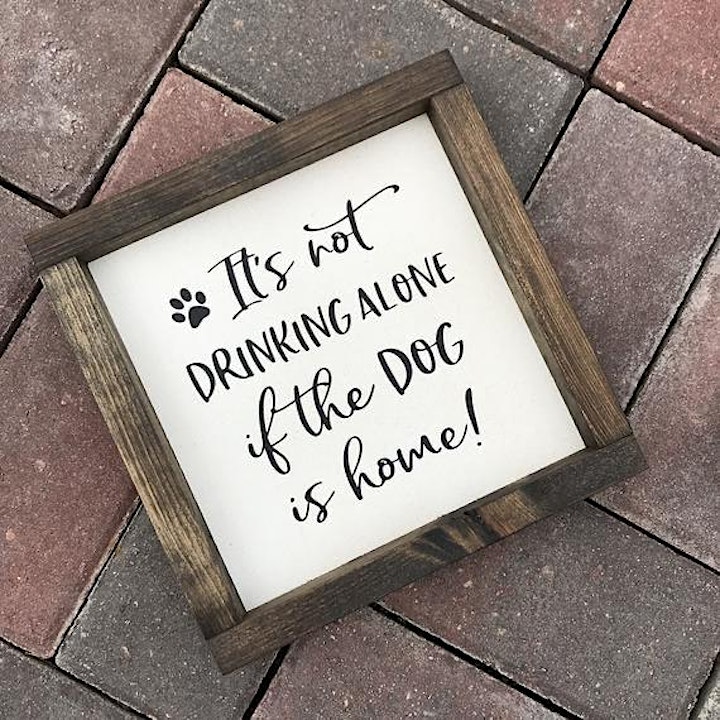 It's not
DRINKING ALONE
if the DOG
is home!